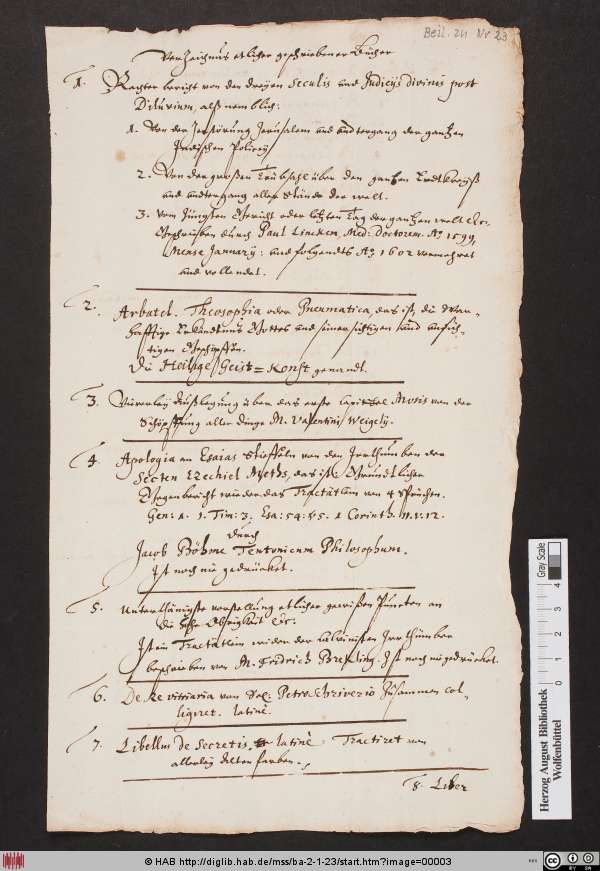 Beil. 24 Nr 23.
Verzeichnus etlicher geschriebener Bücher
1. bericht von den dreyen Seculis und Judicijs divinis post
Diluvium, alß nemblich:
1. Von der Zerstörung Jerusalem und undtergang der gantzen
Jüdischen Policey
2. Von der großen Trübsahl über den gantzen Erdtkreyß
und undtergang aller Stände der welt.
3. Vom Jüngsten Gericht oder letzten Tag der gantzen welt &c.
Geschrieben durch Paul Lincken, Med: Doctorem. Aō 1599,
Mense Januarij: und folgendts Aō 1602 vermehret
und vollendet.
2. Arbatel. Theosophia oder Pneumatica, das ist, die War-
hafftige Erkändtnuß Gottes und seiner sichtigen und unsich-
tigen Geschöpffen.
Die Heilige Geist = Konst genandt.
3. Viererley Außlegung über das erste Capittel Mosis von der
Schöpffung aller dinge M. Valentini Weigelij.
4. Apologia an Esaias Stieffeln von den Irrthumben der
Secten Ezechiel Meths, das ist: Gründtlicher
Gegenbericht wieder das Tractätlein von 4 Sprüchen.
Gen: 1. 1. Tim: 3. Esa: 54: V5. 1 Corinth. 11. V. 12.
durch
Jacob Böhme Teutonicum Philosophum.
Ist noch nie gedrücket.
5. Unterthänigste vorstellung etlicher gewißen Puncten an
die Obrigkeit &c:
Ist ein Tractätlein wieder der Calvinisten Irrthumber
beschrieben von M. Fridrich Breckling. Ist noch nie gedrücket.
6. De Re vitriaria von Petro Schriverio Zusammen col-
ligiret. latinè.
7. Libellus de Secretis, latinè Tractiret von
allerley farben.
8. Liber
Herzog August Bibliothek
Wolfenbüttel
Gray Scale
0 1 2 3 4
© HAB http://diglib.hab.de/mss/ba-2-1-23/start.htm?image=00003
cc BY SA